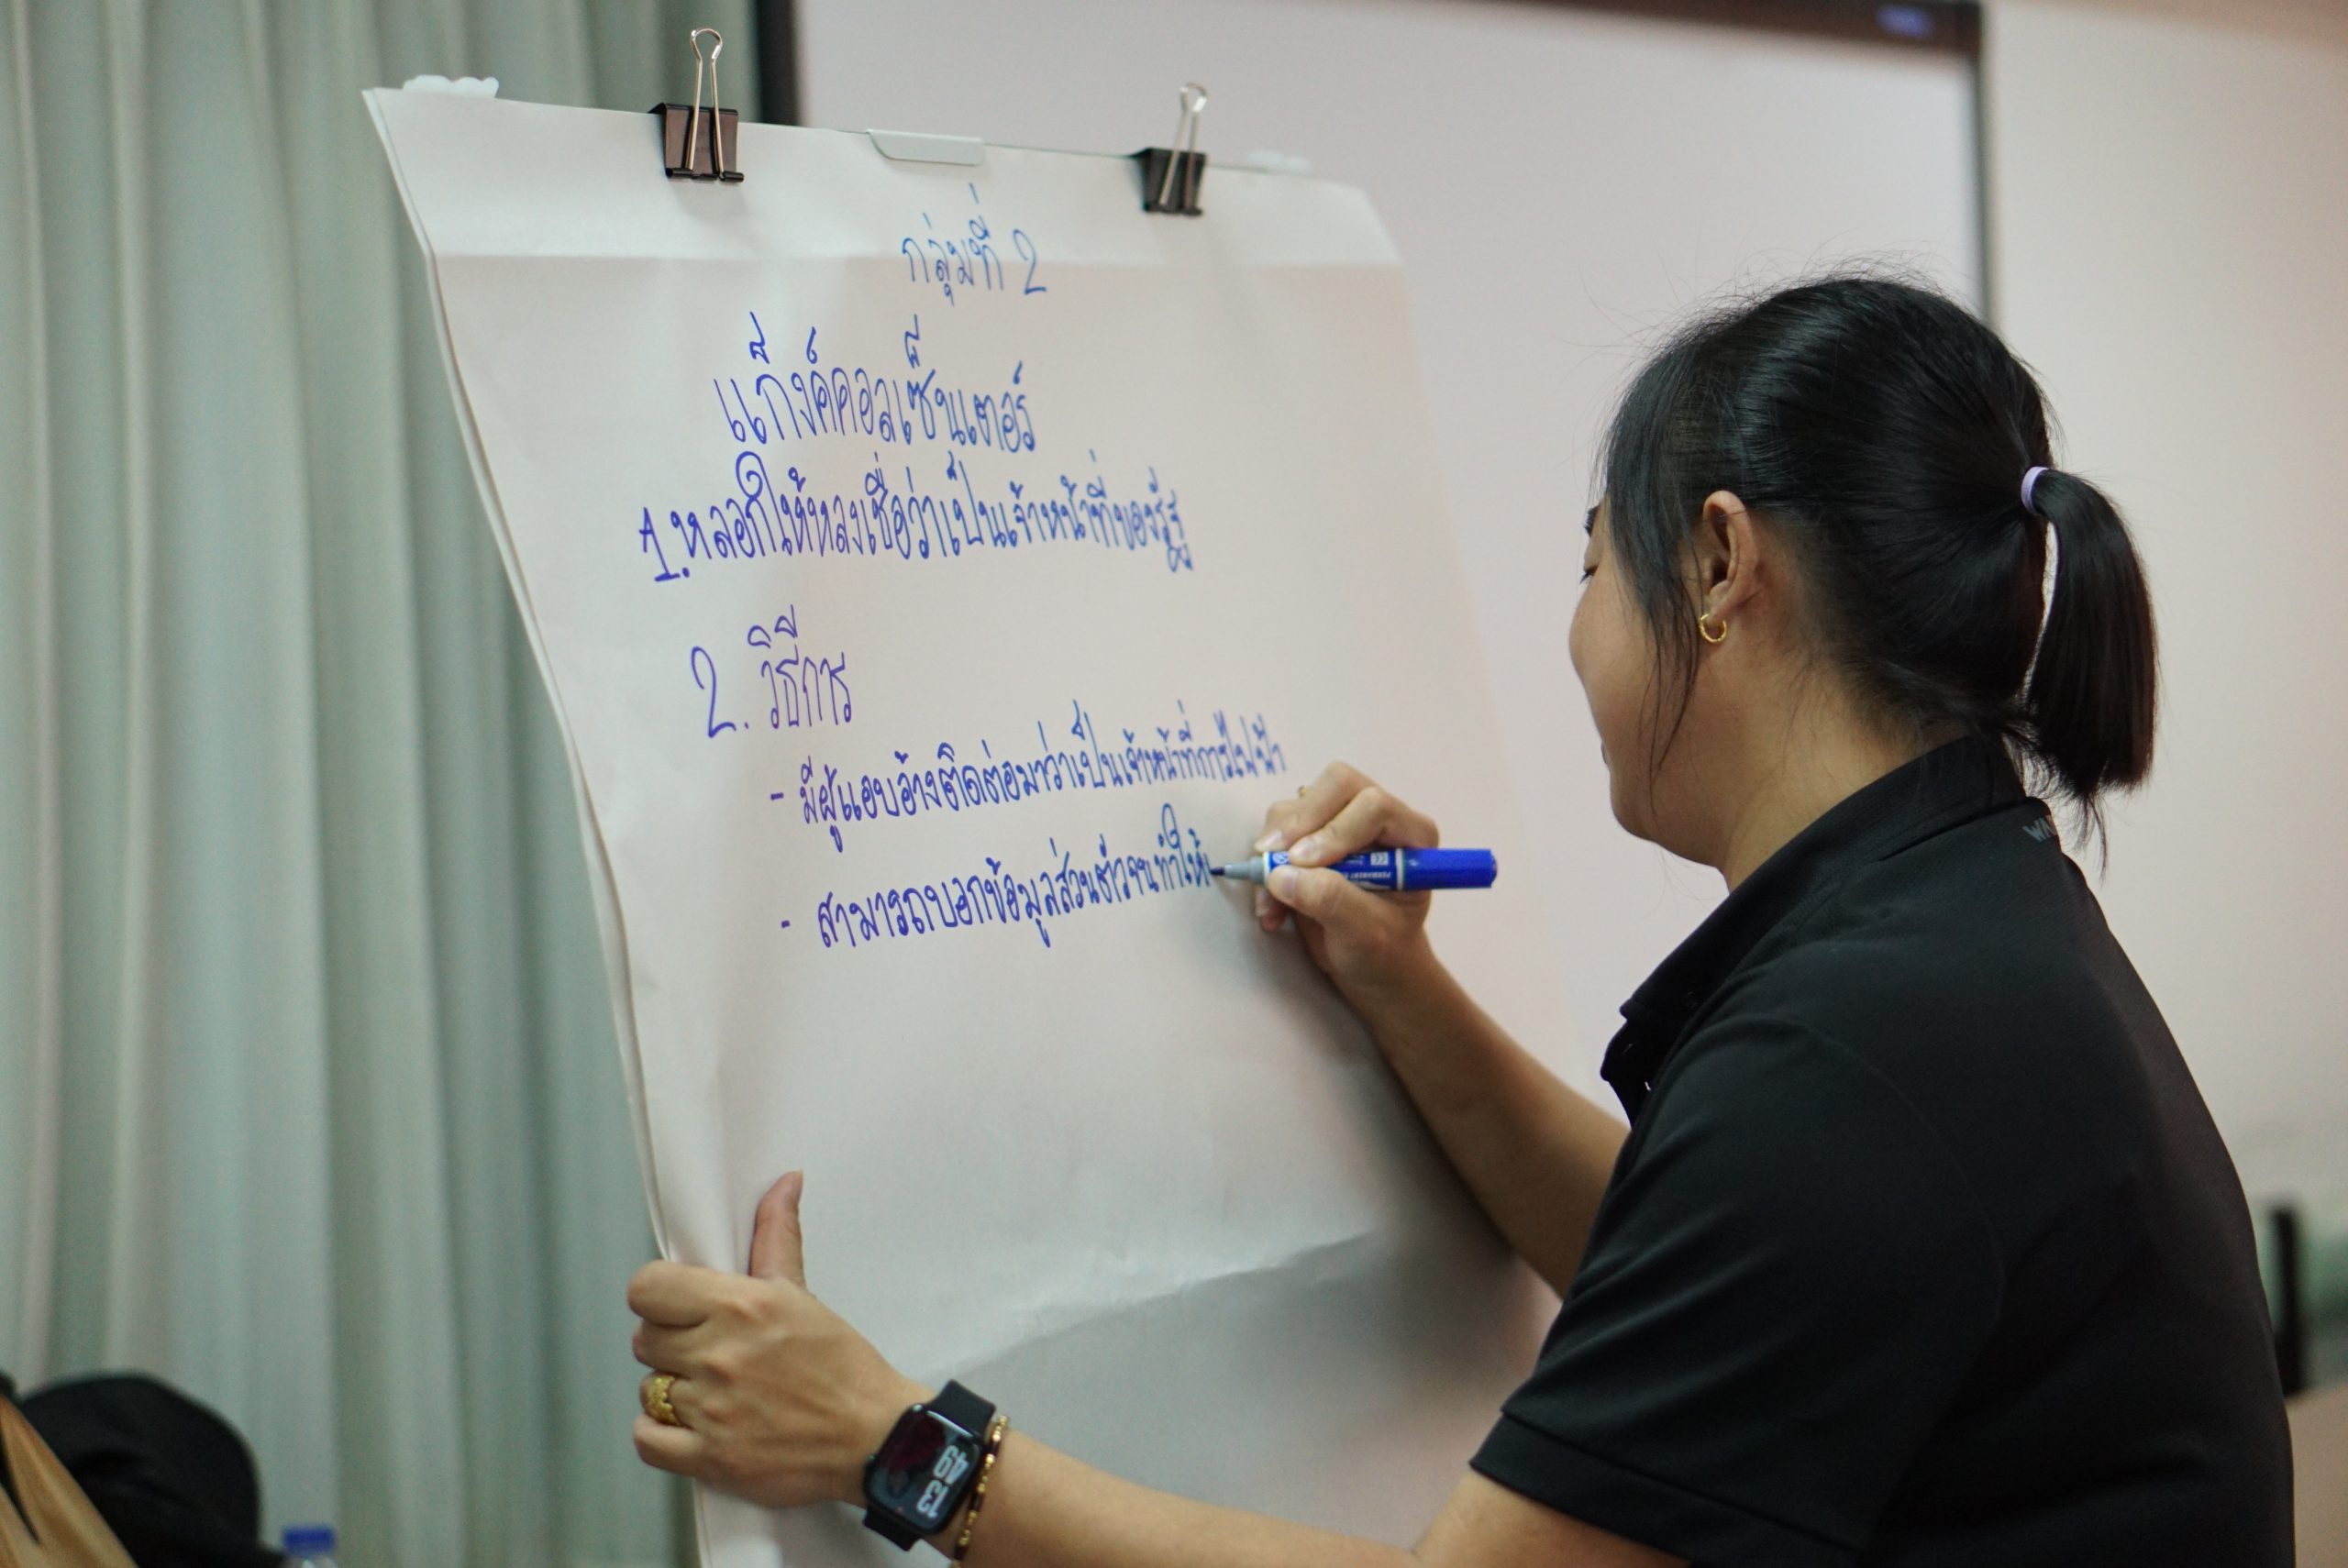 กลุ่มที่ 2
แก๊งค์คอลเซ็นเตอร์
1.หลอกให้หลงเชื่อว่าเป็นเจ้าหน้าที่ของรัฐ
2. วิธีการ
- มีผู้แอบอ้างติดต่อมาว่าเป็นเจ้าหน้าที่การไฟฟ้า
- สามารถบอกข้อมูลส่วนตัวจนทำให้
PERMANENT
13
49